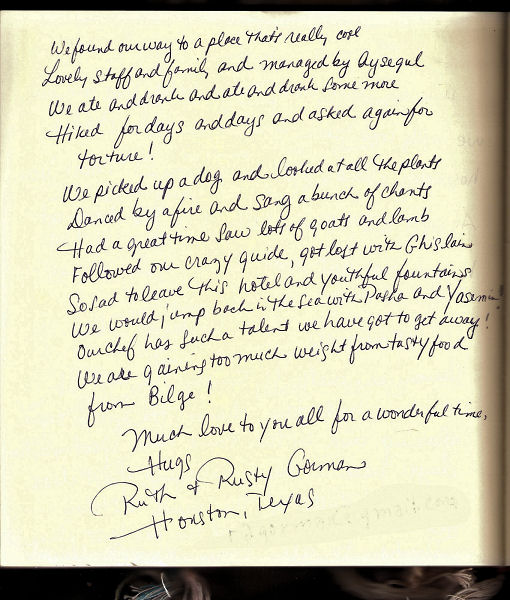 We found our way to a place that's really cool
Lovely staff and family and managed by Aysegul
We ate and drank and ate and drank some more
Hiked for days and days and asked again for
torture!
We picked up a dog and looked at all the plants
Danced by a fire and sang a bunch of chants
Had a great time saw lots of goats and lamb
Followed our crazy guide, got lost with Ghislain
So sad to leave this hotel and youthful fountains
We would jump back in the sea with Pasha and Yasemin!
Our chef has such a talent we have got to get away!
We are gaining too much weight from tasty food
from Bilge!
Much love to you all for a wonderful time,
Hugs
Ruth & Rusty Gorman
Houston, Texas